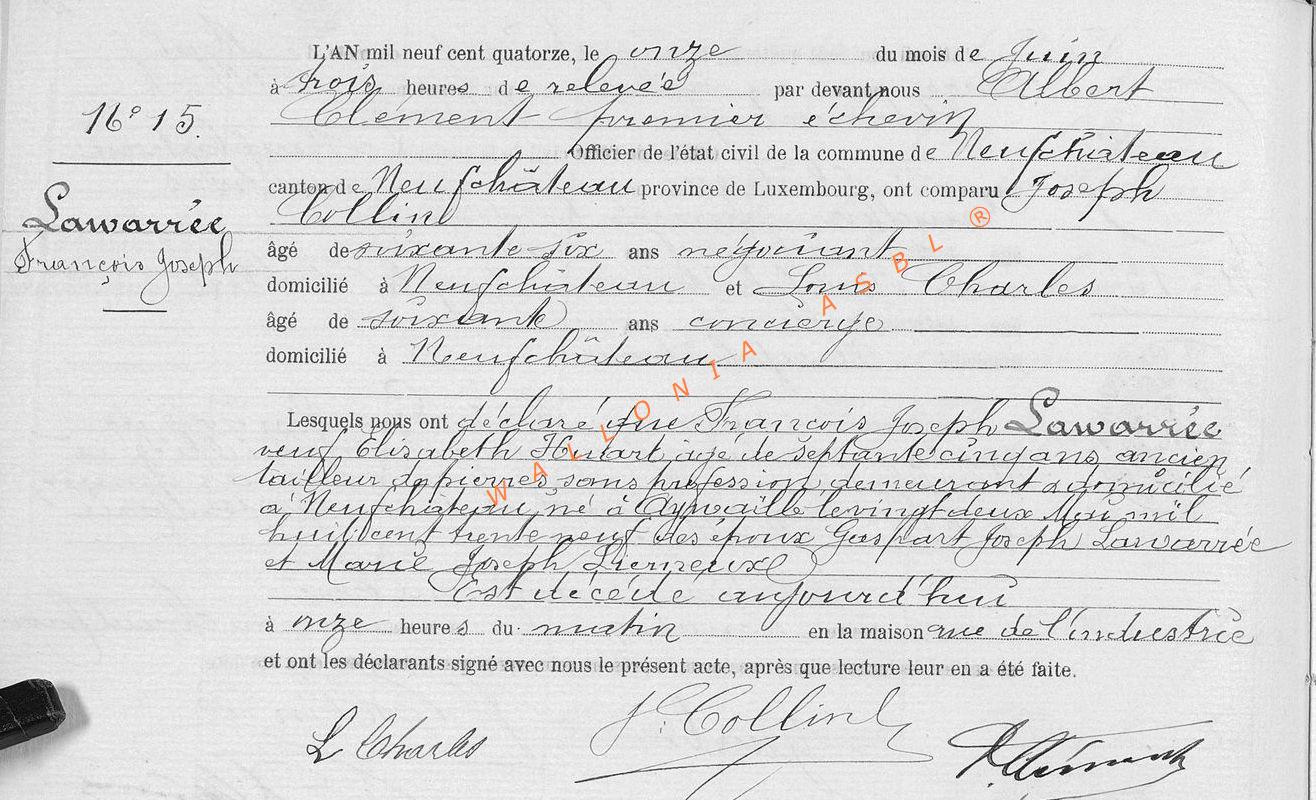 L'AN mil neuf cent quatorze, le onze du mois de Juin
à trois heures de relevée par devant nous Albert
Clément premier échevin
N° 15.
Officier de l'état civil de la commune de Neufchâteau
canton de Neufchâteau province de Luxembourg, ont comparu Joseph
Collin
Lawarrée
François Joseph
âgé de soixante six ans négociant
domicilié à Neufchâteau et Louis Charles
âgé de soixante ans concierge
domicilié à Neufchâteau
Lesquels nous ont déclaré que François Joseph Lawarrée
veuf Elisabeth Hubart âgé de septante cinq ans, ancien
tailleur de pierres sans profession demeurant & domicilié
à Neufchâteau, né à Aywaille le vingt deux Mai mil
huit cent trente neuf des époux Gaspart Joseph Lawarrée
et Marie Joseph Liemeux
Est décédé aujourd'hui
à onze heures du matin en la maison rue de l'industrie
et ont les déclarants signé avec nous le présent acte, après que lecture leur en a été faite.
L Charles J. Collin A. Clément
WALLONIA ASBL ®